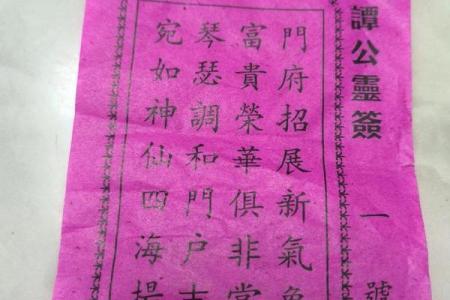 譚公靈簽 一 號
門府招展新氣象
富貴榮華俱非常
琴瑟調和門戶
宛如神仙四海